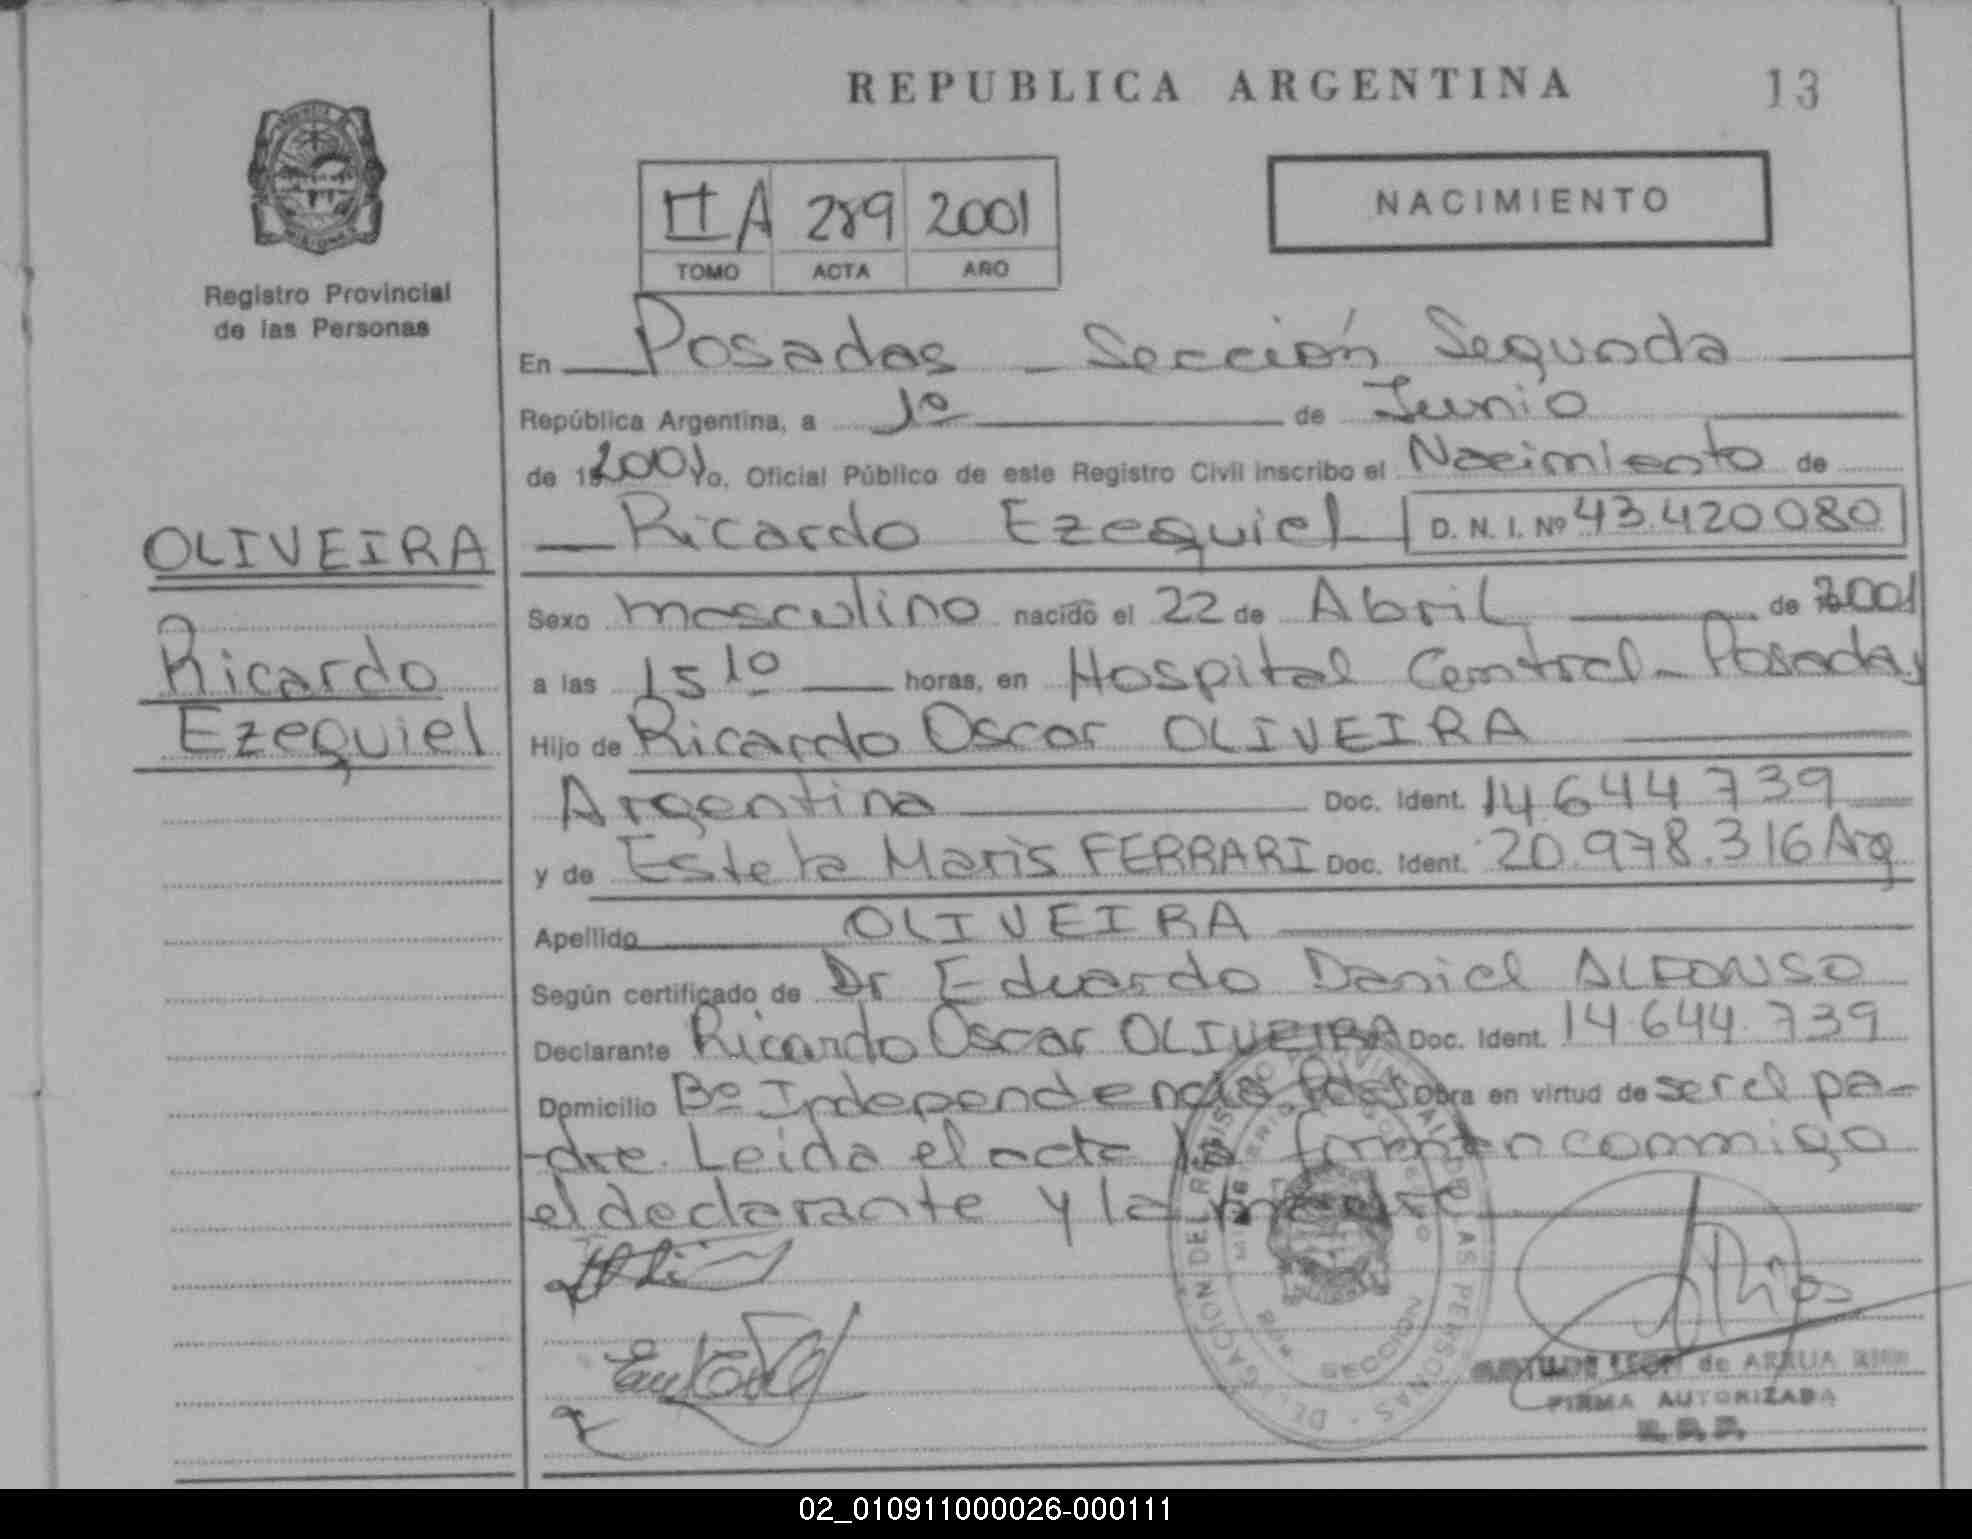 REPUBLICA ARGENTINA
13
Registro Provincial
de las Personas
II A 289 2001
TOMO ACTA AÑO
NACIMIENTO
En Posadas - Sección Segunda
República Argentina, a 1º de Junio
de 2001 Yo, Oficial Público de este Registro Civil inscribo el Nacimiento de
Ricardo Ezequiel D. N. I. Nº 43.420080
OLIVEIRA
Ricardo
Ezequiel
Sexo masculino nacido el 22 de Abril de 2001
a las 15 10 horas, en Hospital Central - Posadas
Hijo de Ricardo Oscar OLIVEIRA
Argentina Doc. Ident. 14.644.739
y de Estela Maris FERRARI Doc. Ident. 20.978.316 Arg
Apellido OLIVEIRA
Según certificado de Dr Eduardo Daniel ALFONSO
Declarante Ricardo Oscar OLIVEIRA Doc. Ident. 14.644.739
Domicilio Bº Independencia Pdas obra en virtud de ser el pa-
dre. Leida el acta la firman conmigo
el declarante y la madre
DELEGACION DEL REGISTRO PROVINCIAL DE LAS PERSONAS
LEON de ARRUA
FIRMA AUTORIZADA
02_010911000026-000111